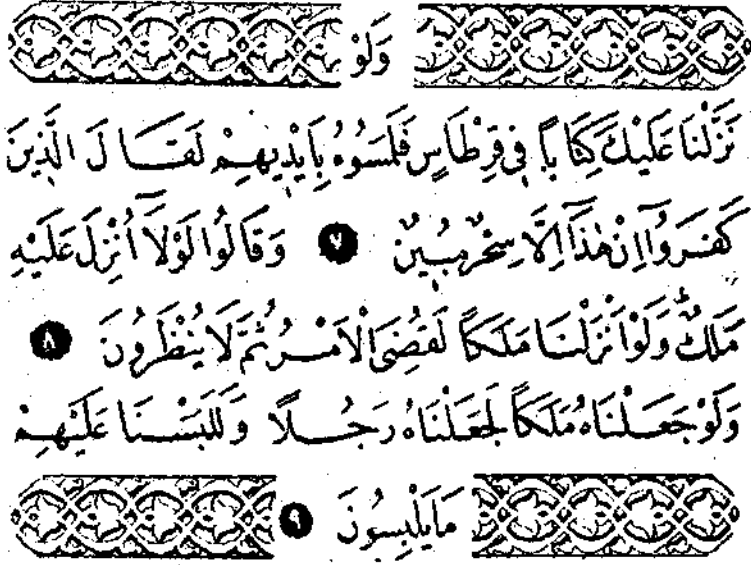 وَلَوْ
نَزَّلْنَا عَلَيْكَ كِتَابًا فِي قِرْطَاسٍ فَلَمَسُوهُ بِأَيْدِيهِمْ لَقَالَ الَّذِينَ
كَفَرُوا إِنْ هَٰذَا إِلَّا سِحْرٌ مُبِينٌ ٧ وَقَالُوا لَوْلَا أُنْزِلَ عَلَيْهِ
مَلَكٌ وَلَوْ أَنْزَلْنَا مَلَكًا لَقُضِيَ الْأَمْرُ ثُمَّ لَا يُنْظَرُونَ ٨
وَلَوْ جَعَلْنَاهُ مَلَكًا لَجَعَلْنَاهُ رَجُلًا وَلَلَبَسْنَا عَلَيْهِمْ
مَا يَلْبِسُونَ ٩